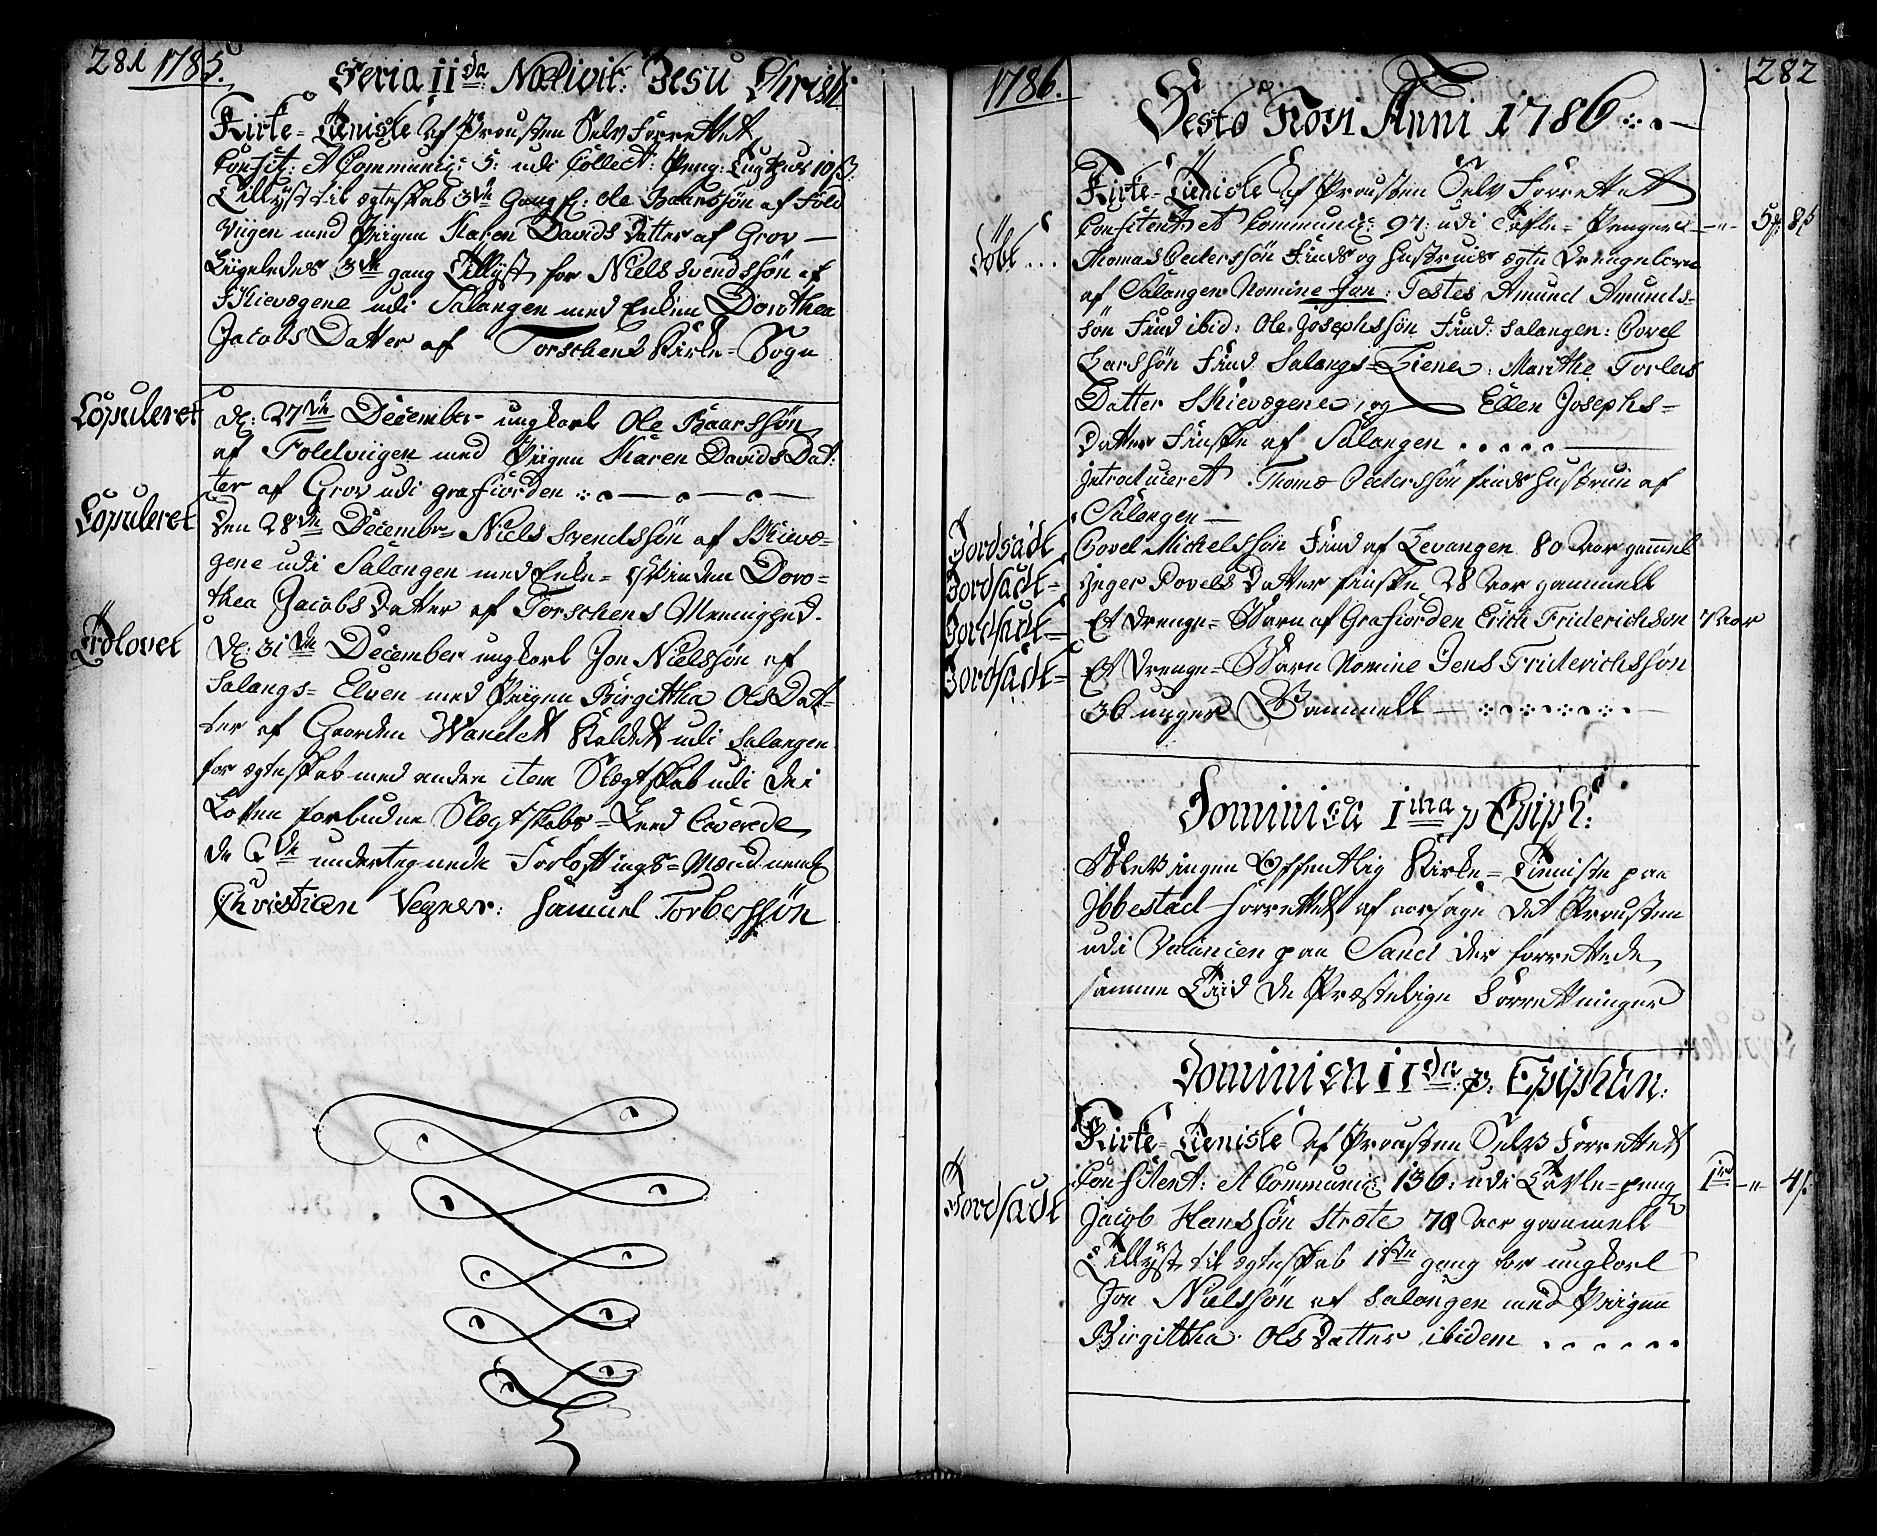 281 1785.
Feria IIda Nativit: Jesu Christi
Kirke-Tieniste af Prousten Selv Forrettet,
Confit: et Communic: 5: udi Collect: Peng:
Tillyst til ægteskab 3de Gang f: Ole Baarssøn af Fold
Viigen med Piigen Karen Davids Datter af Grov —
Liigeledes 3de gang Tillyst for Niels Svendssøn af
Skievogene udi Salangen med Enken Dorothea
Jacobs Datter af Torschens Kirke-Sogn
Copuleret
d: 27de December ungkarl Ole Baarssøn
af Foldviigen med Piigen Karen Davids Dat:
ter af Grov udi Grafiorden
Copuleret
den 28de Decembr= Niels Svendssøn af Skievo=
gene udi Salangen med Enke=qvinden Doro=
thea Jacobs Datter af Torschens Mennighed.
Trolovet
d: 31de December ungkarl Jon Nielssøn af
Salangs=Elven med Piigen Birgittha Ols Dat=
ter af Gaarden Wandet Kaldet udi Salangen
for ægteskab med anden item Slægtskab udi de i
Loven forbudne Slægtskabs=Leed Caverede
de 2de undertegnede Forlovings=Mænd neml:
Christian Vegner: Samuel Torberssøn
1786. 282
Festo Novi Anni 1786
Kirke-Tieniste af Prousten Selv Forrettet
Confitent: et Communic: 97: udi Tafle=Penge 5 8
Døbt...
Thomas Pederssøn Finds og Hustruis ægte Drengebarn
af Salangen Nomine Jon: Testes Amund Amunds=
søn Find ibid: Ole Josephssøn Find: Salangen: Povel
Larssøn Find Salangs= Marithe Torlas
Datter Skievogene, og Ellen Josephs=
Datter Finske af Salangen
Introduceret Thomas Pederssøn Finds Hustrui af
Salangen —
Jordsadt
Povel Michelssøn Find af Levangen 80 Aar gammel
Jordsadt=
Inger Povels Datter Finske 28 Aar gammell
Jordsadt=
Et Drenge=Barn af Grafiorden Erich Friderichson 7 Aar
Jordsadt=
Et Drenge=Barn Nomine Jens Friderichssøn
36 uger Gammell
Dominica Ima p Epiph:
Blev ingen Offentlig Kirke=Tieniste paa
Ibbestad forrettet af aarsage det Prousten
udi Vacancen paa Sand der forrettede
samme Tiid de Præstelige Forrettninger
Dominica IIda p: Epiphan:
Kirke-Tieniste af Prousten Selv Forrettet
Confitent: et Communic: 136: udi Tavle=peng 1 4
Jordsadt
Jacob Hanssøn Stræte 70 Aar gammell
Tillyst til ægteskab 1ste gang for ungkarl
Jon Nielssøn af Salangen med Piigen
Birgittha Ols Datter ibidem